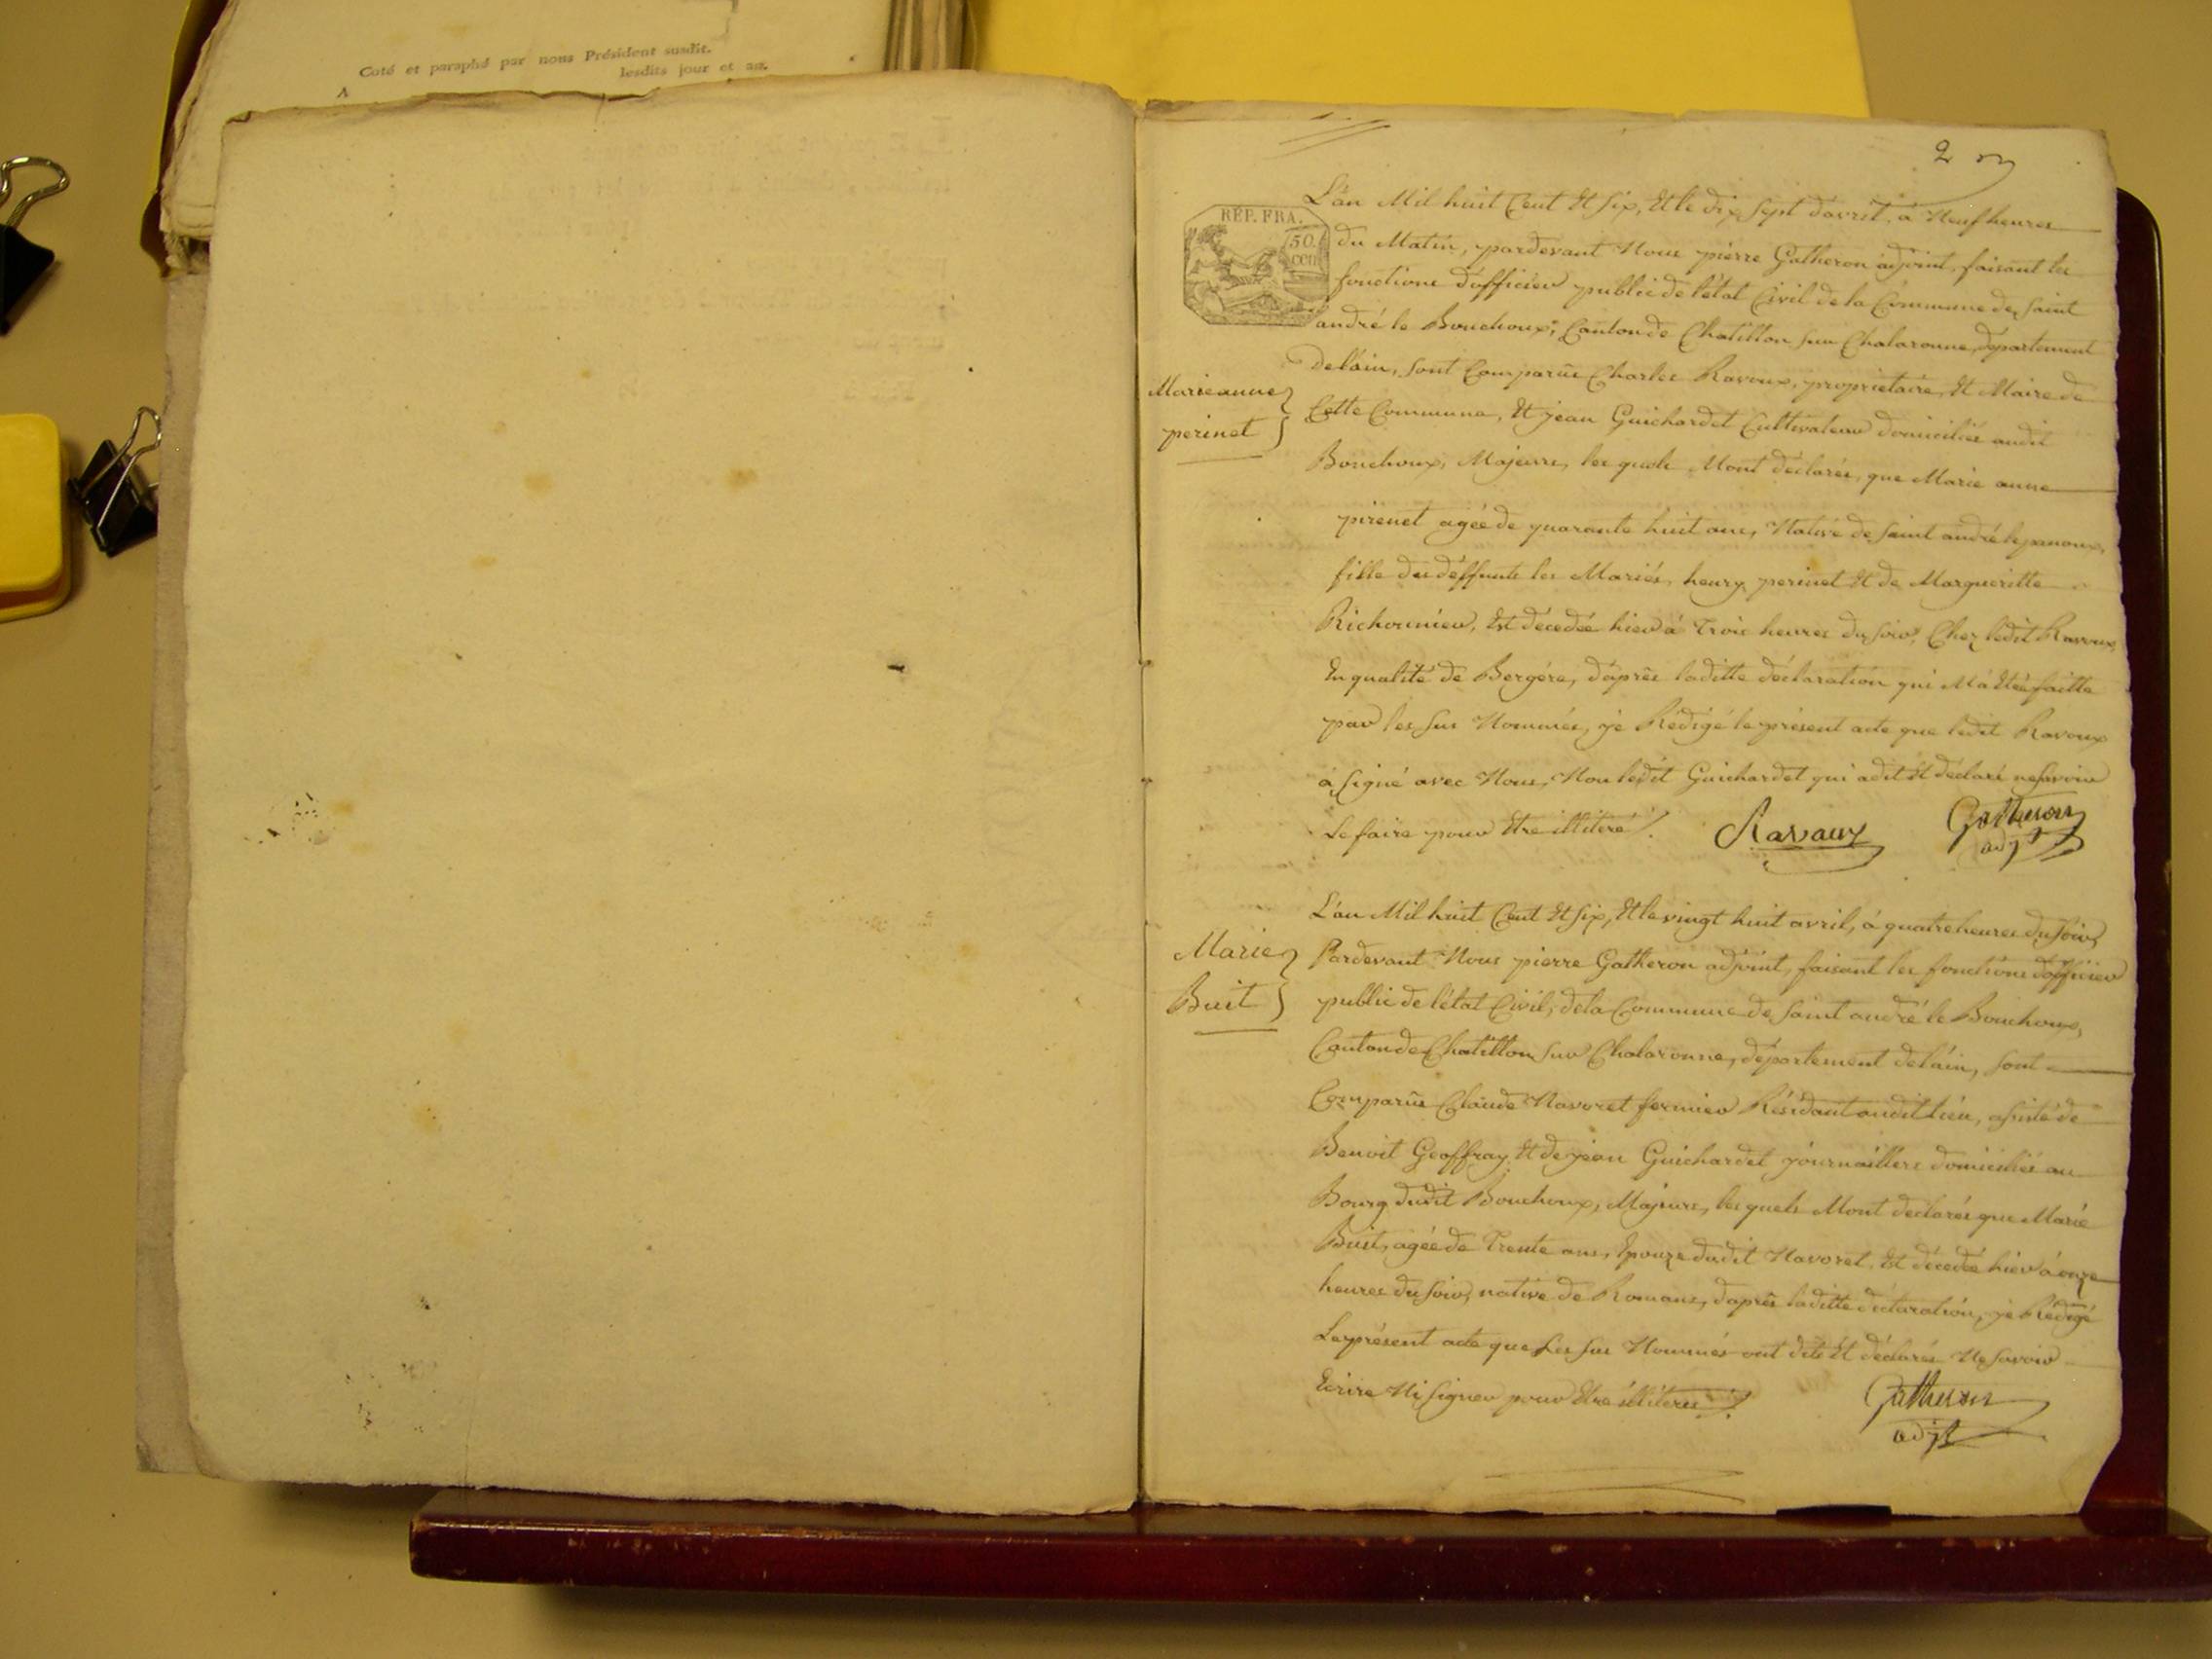 Coté et paraphé par nous Président susdit.
lesdits jour et an.
A
2
RÉP. FRA.
50.
cen
L'an Mil huit Cent Et Six, Et le dix Sept d'avril, à Neuf heures
du Matin, pardevant Nous pierre Gatheron adjoint, faisant les
fonctions d'officier public de l'état Civil de la Commune de Saint
andré le Bouchoux, Canton de Chatillon sur Chalaronne, département
De l'ain, Sont Comparûs Charles Ravoux, propriétaire, Et Maire de
Marie anne
perinet
Cette Commune, Et jean Guichardet Cultivateur domiciliés audit
Bouchoux, Majeurs, les quels Mont déclarés, que Marie anne
pirenet agée de quarante huit ans, Native de Saint andré le panoux,
fille des déffunts les Mariés, henry perinet Et de Margueritte
Richonnier, Est décedée hier à Trois heures du Soir, Chez ledit Ravoux,
En qualité de Bergére, d'après laditte déclaration qui Ma Etée faitte
par les Sus Nommés, je Rédigé le présent acte que ledit Ravoux
à Signé avec Nous, Non ledit Guichardet qui a dit Et déclaré ne Savoir
Le faire pour Etre illitéré.
Ravaux
Gatheron
adjt
L'an Mil huit Cent Et Six, Et le vingt huit avril, à quatre heures du Soir,
Marie
Buit
Pardevant Nous pierre Gatheron adjoint, faisant les fonctions d'officier
public de l'état Civil, de la Commune de Saint andré le Bouchoux,
Canton de Chatillon Sur Chalaronne, département de l'ain, Sont
Comparûs Claude Navoret fermier Résidant audit Lieu, assisté de
Benoit Geoffray Et de jean Guichardet journailliers domiciliés au
Bourg dudit Bouchoux, Majeurs, les quels Mont déclarés que Marie
Buit, agée de Trente ans, Epouze dudit Navoret, Est décedée hier à onze
heures du Soir, native de Romans, d'après laditte déclaration, je Rédigé
Le présent acte que Les Sus Nommés ont dits Et déclarés Ne Savoir
Ecrire Ni Signer pour Etre illiterés.
Gatheron
adjt